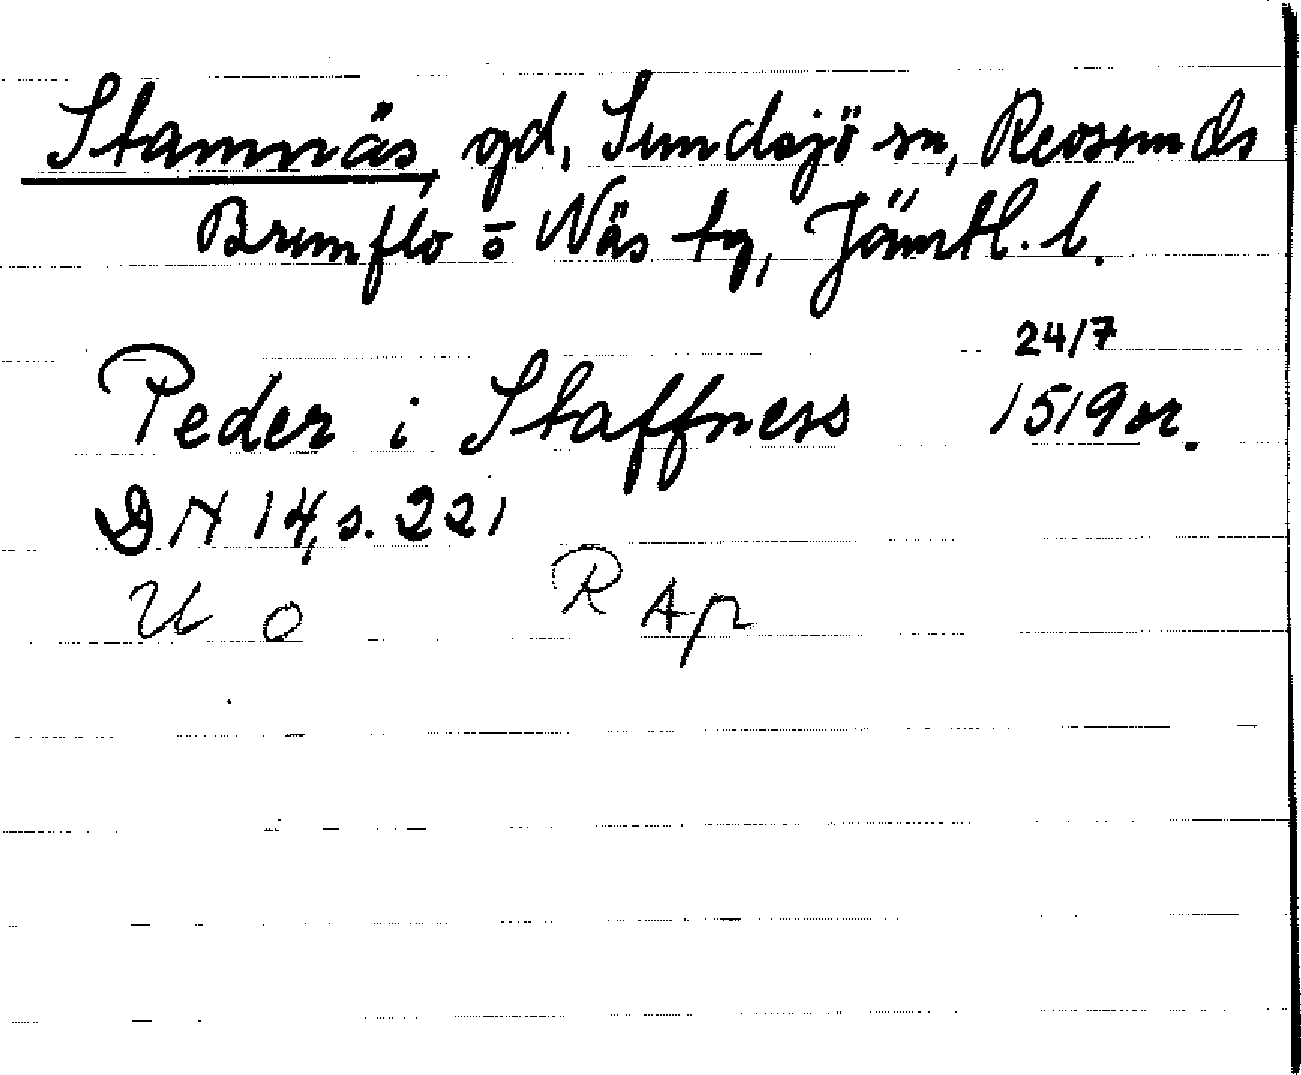 Stamnäs, gd, Sundsjö sn, Revsunds
Brunflo o Näs tg, Jämtl. l.
24/7
Peder i Staffness 1519 or.
DN 14, s. 221
U O R Ap